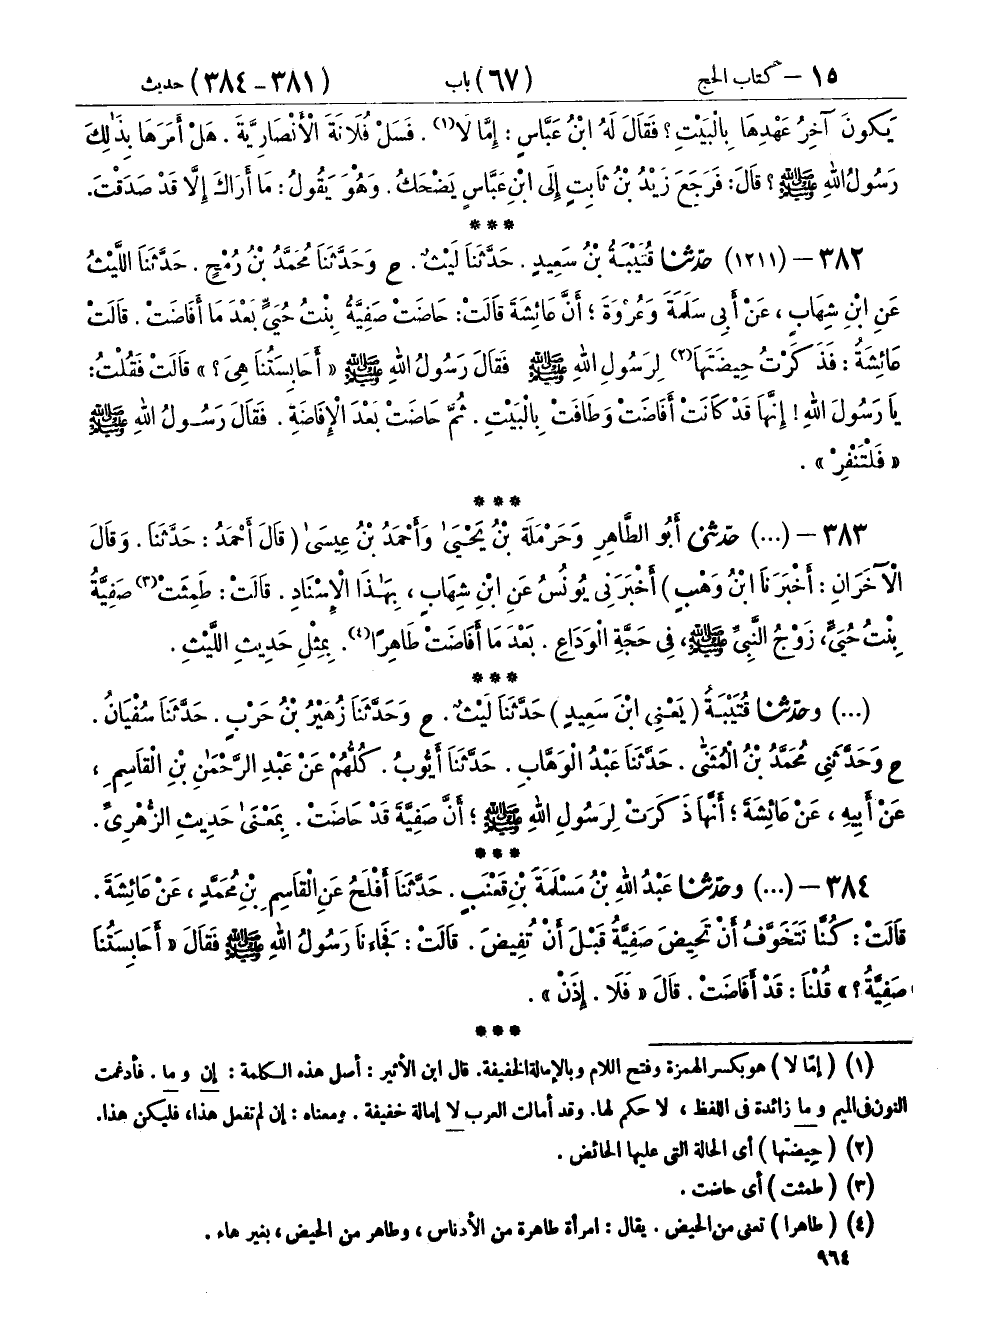 ١٥ – كتاب الحج (٦٧) باب (٣٨١ – ٣٨٤) حديث
يَكُونَ آخِرُ عَهْدِهَا بِالْبَيْتِ؟ فَقَالَ لَهُ ابْنُ عَبَّاسٍ: إِمَّا لَا(١). فَسَلْ فُلَانَةَ الْأَنْصَارِيَّةَ. هَلْ أَمَرَهَا بِذَٰلِكَ
رَسُولُ اللهِ ﷺ؟ قَالَ: فَرَجَعَ زَيْدُ بْنُ ثَابِتٍ إِلَى ابْنِ عَبَّاسٍ يَضْحَكُ. وَهُوَ يَقُولُ: مَا أَرَاكَ إِلَّا قَدْ صَدَقْتَ.
***
٣٨٢ – (١٢١١) حَدَّثَنَا قُتَيْبَةُ بْنُ سَعِيدٍ. حَدَّثَنَا لَيْثٌ. ح وَحَدَّثَنَا مُحَمَّدُ بْنُ رُمْحٍ. حَدَّثَنَا اللَّيْثُ
عَنِ ابْنِ شِهَابٍ، عَنْ أَبِي سَلَمَةَ وَعُرْوَةَ؛ أَنَّ عَائِشَةَ قَالَتْ: حَاضَتْ صَفِيَّةُ بِنْتُ حُيَيٍّ بَعْدَ مَا أَفَاضَتْ. قَالَتْ
عَائِشَةُ: فَذَكَرْتُ حِيضَتَهَا(٢) لِرَسُولِ اللهِ ﷺ فَقَالَ رَسُولُ اللهِ ﷺ «أَحَابِسَتُنَا هِيَ؟» قَالَتْ فَقُلْتُ:
يَا رَسُولَ اللهِ! إِنَّهَا قَدْ كَانَتْ أَفَاضَتْ وَطَافَتْ بِالْبَيْتِ. ثُمَّ حَاضَتْ بَعْدَ الْإِفَاضَةِ. فَقَالَ رَسُولُ اللهِ ﷺ
«فَلْتَنْفِرْ».
***
٣٨٣ – (...) حَدَّثَنِي أَبُو الطَّاهِرِ وَحَرْمَلَةُ بْنُ يَحْيَىٰ وَأَحْمَدُ بْنُ عِيسَىٰ (قَالَ أَحْمَدُ: حَدَّثَنَا. وَقَالَ
الْآخَرَانِ: أَخْبَرَنَا ابْنُ وَهْبٍ) أَخْبَرَنِي يُونُسُ عَنِ ابْنِ شِهَابٍ، بِهَٰذَا الْإِسْنَادِ. قَالَتْ: طَمِثَتْ(٣) صَفِيَّةُ
بِنْتُ حُيَيٍّ، زَوْجُ النَّبِيِّ ﷺ، فِي حَجَّةِ الْوَدَاعِ. بَعْدَ مَا أَفَاضَتْ طَاهِرًا(٤). بِمِثْلِ حَدِيثِ اللَّيْثِ.
***
(...) وحَدَّثَنَا قُتَيْبَةُ (يَعْنِي ابْنَ سَعِيدٍ) حَدَّثَنَا لَيْثٌ. ح وَحَدَّثَنَا زُهَيْرُ بْنُ حَرْبٍ. حَدَّثَنَا سُفْيَانُ.
ح وَحَدَّثَنِي مُحَمَّدُ بْنُ الْمُثَنَّىٰ. حَدَّثَنَا عَبْدُ الْوَهَّابِ. حَدَّثَنَا أَيُّوبُ. كُلُّهُمْ عَنْ عَبْدِ الرَّحْمَٰنِ بْنِ الْقَاسِمِ،
عَنْ أَبِيهِ، عَنْ عَائِشَةَ؛ أَنَّهَا ذَكَرَتْ لِرَسُولِ اللهِ ﷺ؛ أَنَّ صَفِيَّةَ قَدْ حَاضَتْ. بِمَعْنَىٰ حَدِيثِ الزُّهْرِيِّ.
***
٣٨٤ – (...) وحَدَّثَنَا عَبْدُ اللهِ بْنُ مَسْلَمَةَ بْنِ قَعْنَبٍ. حَدَّثَنَا أَفْلَحُ عَنِ الْقَاسِمِ بْنِ مُحَمَّدٍ، عَنْ عَائِشَةَ.
قَالَتْ: كُنَّا نَتَخَوَّفُ أَنْ تَحِيضَ صَفِيَّةُ قَبْلَ أَنْ تُفِيضَ. قَالَتْ: فَجَاءَنَا رَسُولُ اللهِ ﷺ فَقَالَ «أَحَابِسَتُنَا
صَفِيَّةُ؟» قُلْنَا: قَدْ أَفَاضَتْ. قَالَ «فَلَا. إِذَنْ».
***
(١) (إمّا لا) هو بكسر الهمزة وفتح اللام وبالإمالة الخفيفة. قال ابن الأثير: أصل هذه الكلمة: إن و ما. فأدغمت
النون في الميم و ما زائدة في اللفظ، لا حكم لها. وقد أمالت العرب لا إمالة خفيفة. ومعناه: إن لم تفعل هذا، فليكن هذا.
(٢) (حِيضتها) أي الحالة التي عليها الحائض.
(٣) (طمثت) أي حاضت.
(٤) (طاهرا) تعني من الحيض. يقال: امرأة طاهرة من الأدناس، وطاهر من الحيض، بغير هاء.
٩٦٤